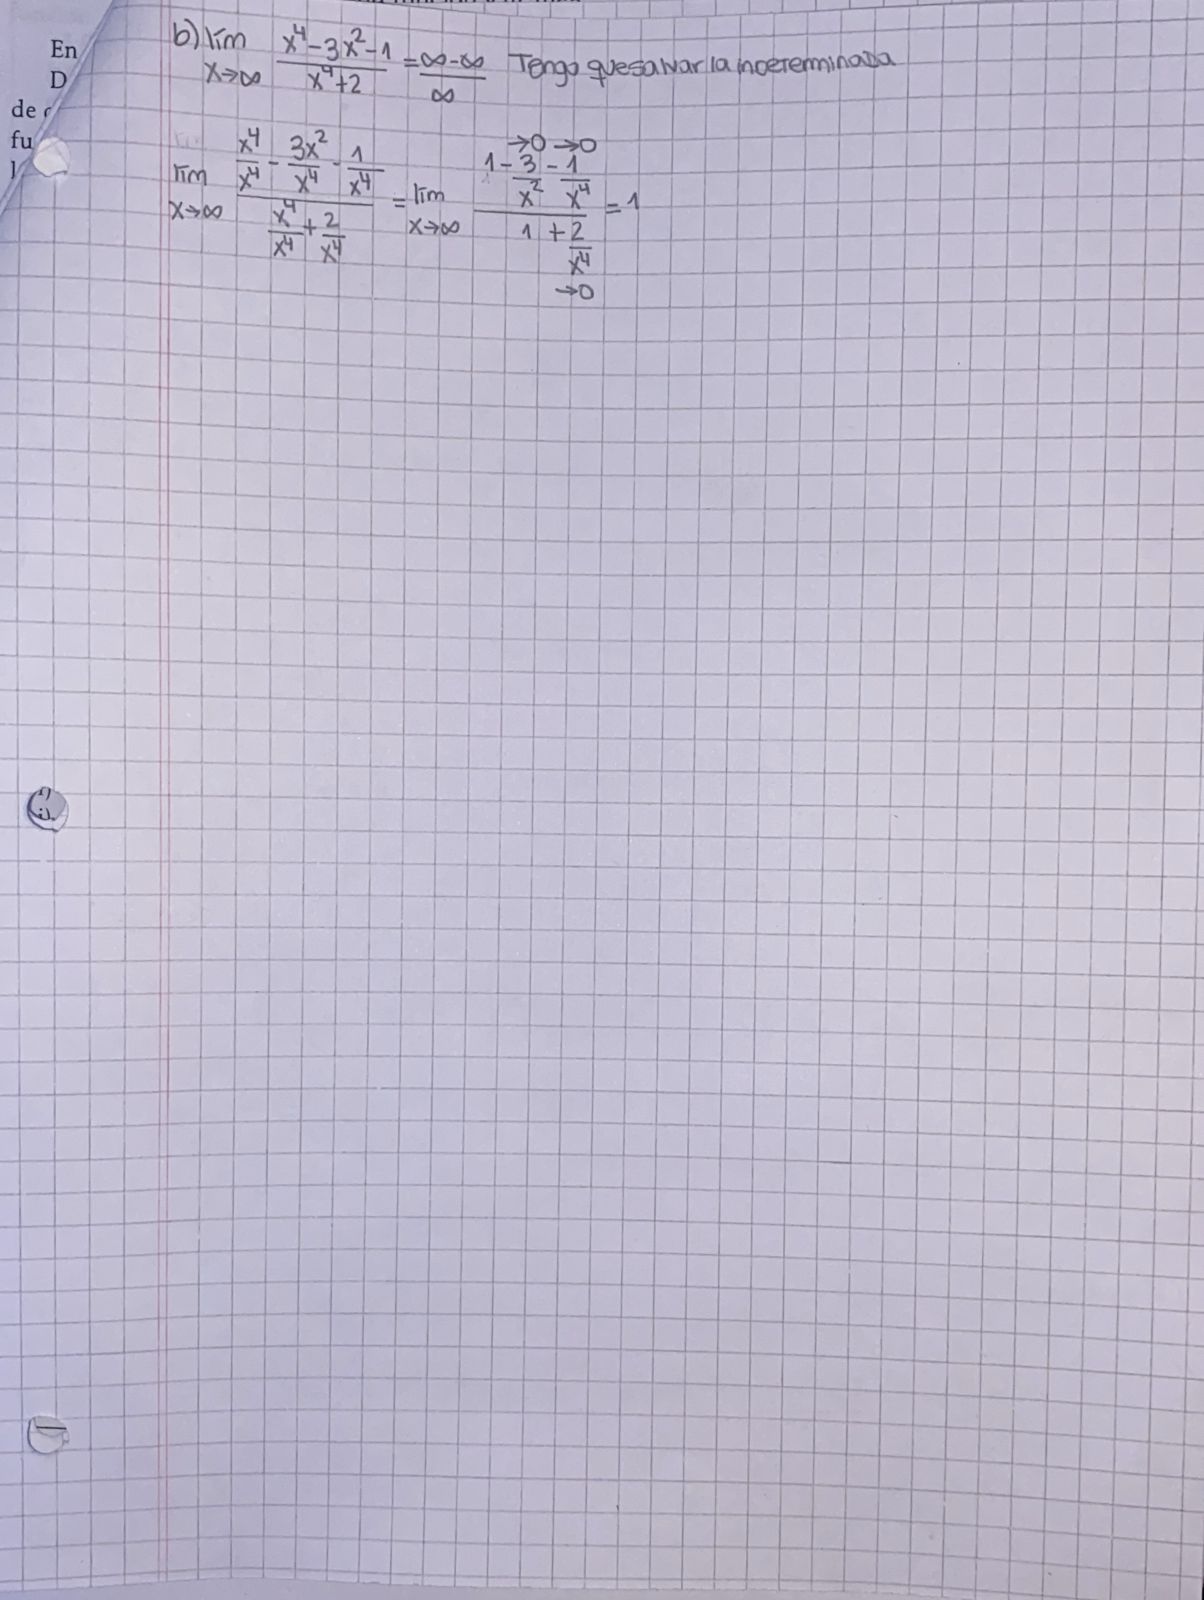 En
D
de
fu
l
b) lím x→∞ (x⁴-3x²-1)/(x⁴+2) = (∞-∞)/∞ Tengo que salvar la indeterminada
lím x→∞ (x⁴/x⁴ - 3x²/x⁴ - 1/x⁴)/(x⁴/x⁴ + 2/x⁴) = lím x→∞ (1 - 3/x² →0 - 1/x⁴ →0)/(1 + 2/x⁴ →0) = 1